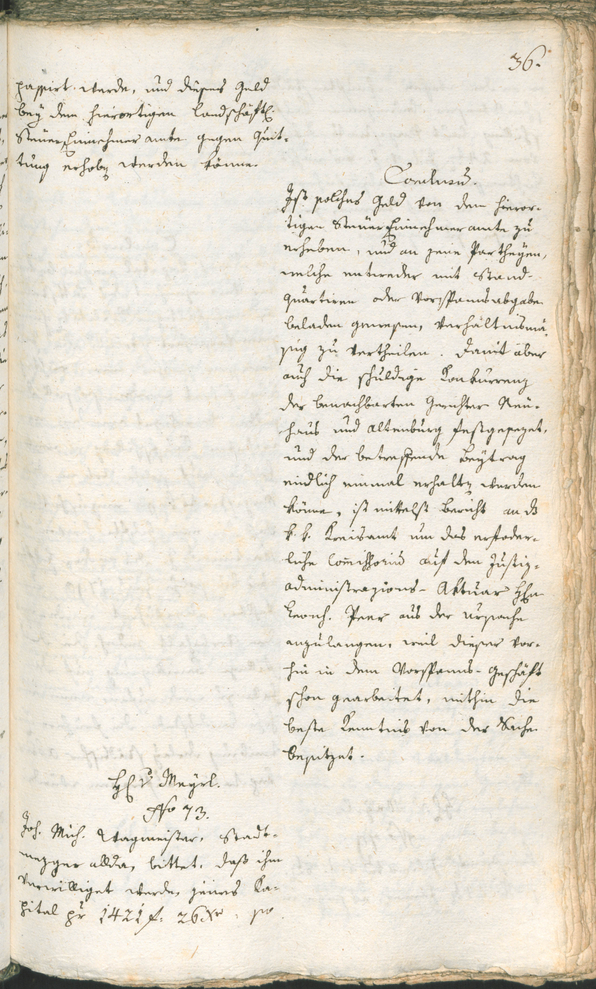 36.
passirt werde, und dieses Geld
bey dem hierortigen Landschäftl.
Steuer Einnehmeramte gegen Quit-
tung erhoben werden könne.
Conclusum.
Ist solches Geld von dem hieror-
tigen Steuer Einnehmeramte zu
erheben, und an jene Partheyen,
welche entweder mit Stand-
quartiren oder Vorspannsabgaben
beladen gewesen, verhältnismä-
ßig zu vertheilen. Damit aber
auch die schuldige Konkurrenz
der benachbarten Gerichter Neu-
haus und Altenburg festgesezet,
und der betreffende Beytrag
endlich einmal erhalten werden
könne, ist mittelst Bericht an das
k. k. Kreisamt um das erforder-
liche Commissorium auf den Justiz-
administrazions-Aktuar Hhn
Leonh. Peer aus der Ursache
anzulangen, weil dieser vor-
hin in dem Vorspanns-Geschäft
schon gearbeitet, mithin die
beste Kenntnis von der Sache
besitzet.
H. v. Mayrl.
No 73.
Joh. Mich. Wagmeister, Stadt-
mezger allda, bittet, daß ihm
verwilliget werde, jenes Ka-
pital pr 1421 f. 26 Xr, so